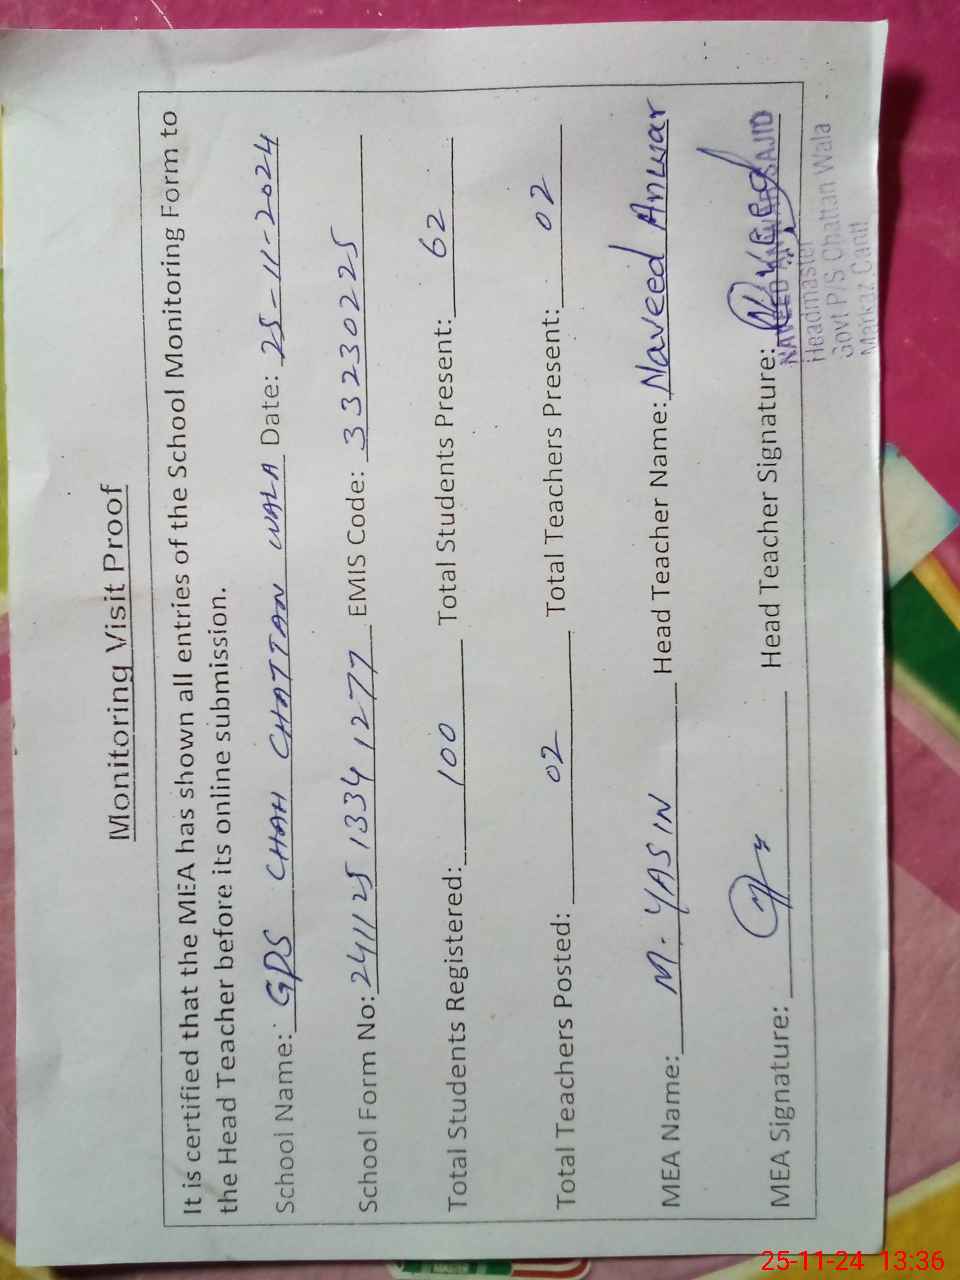 Monitoring Visit Proof
It is certified that the MEA has shown all entries of the School Monitoring Form to
the Head Teacher before its online submission.
School Name: GPS CHAH CHATTAN WALA Date: 25-11-2024
School Form No: 241125 1334 1277 EMIS Code: 33230225
Total Students Registered: 100 Total Students Present: 62
Total Teachers Posted: 02 Total Teachers Present: 02
MEA Name: M. YASIN Head Teacher Name: Naveed Anwar
MEA Signature: Head Teacher Signature: Naveed
NAVEED ANWAR SAJID
Headmaster
Govt P/S Chattan Wala
Markaz Cantt
25-11-24 13:36